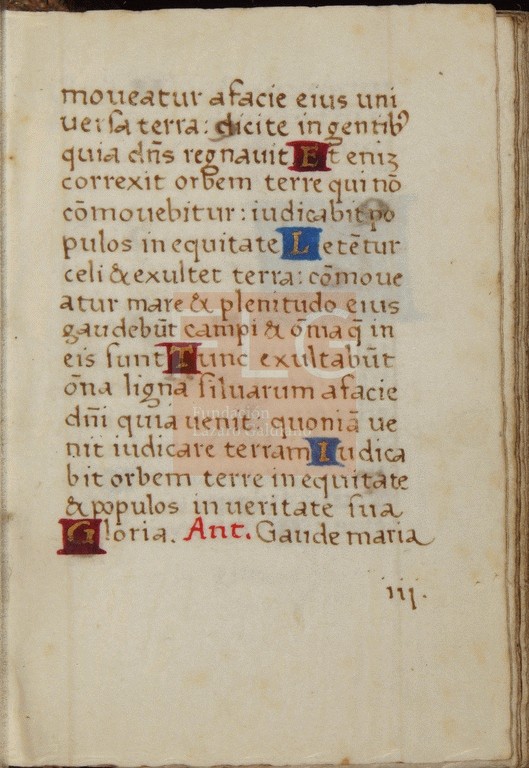 moueatur a facie eius uni
uersa terra: dicite in gentibꝰ
quia dn̄s regnauit Et eniꝫ
correxit orbem terre qui nō
cōmouebitur: iudicabit po
pulos in equitate Letētur
celi & exultet terra: cōmoue
atur mare & plenitudo eius
gaudebūt campi & om̄a q̄ in
eis sunt Tunc exultabūt
om̄a ligna siluarum a facie
dn̄i quia uenit: quoniā ue
nit iudicare terram Iudica
bit orbem terre in equitate
& populos in ueritate sua
Gloria. Ant. Gaude maria
iij.
FLG
Fundación
Lázaro Galdiano